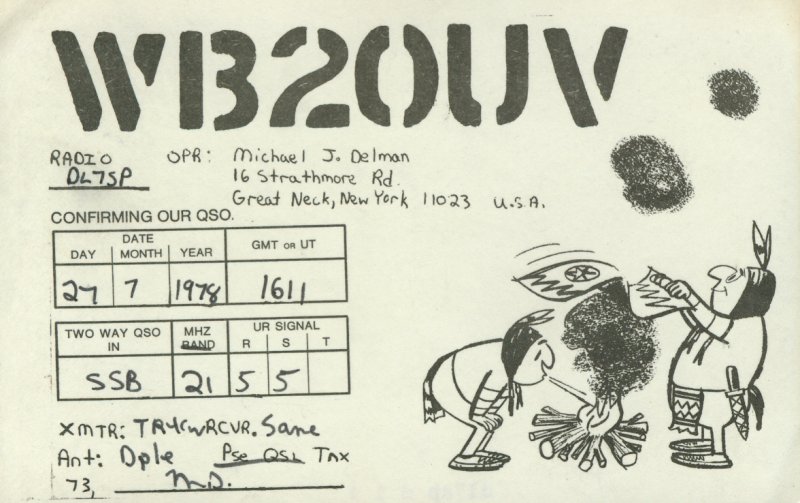 WB2OUV
RADIO OPR: Michael J. Delman
DL7SP 16 Strathmore Rd.
Great Neck, New York 11023 U.S.A.
CONFIRMING OUR QSO.
DATE
DAY MONTH YEAR GMT OR UT
27 7 1978 1611
TWO WAY QSO IN MHZ BAND UR SIGNAL
R S T
SSB 21 5 5
XMTR: TR4CW RCVR. Same
Ant: Dple Pse QSL Tnx
73, M.D.